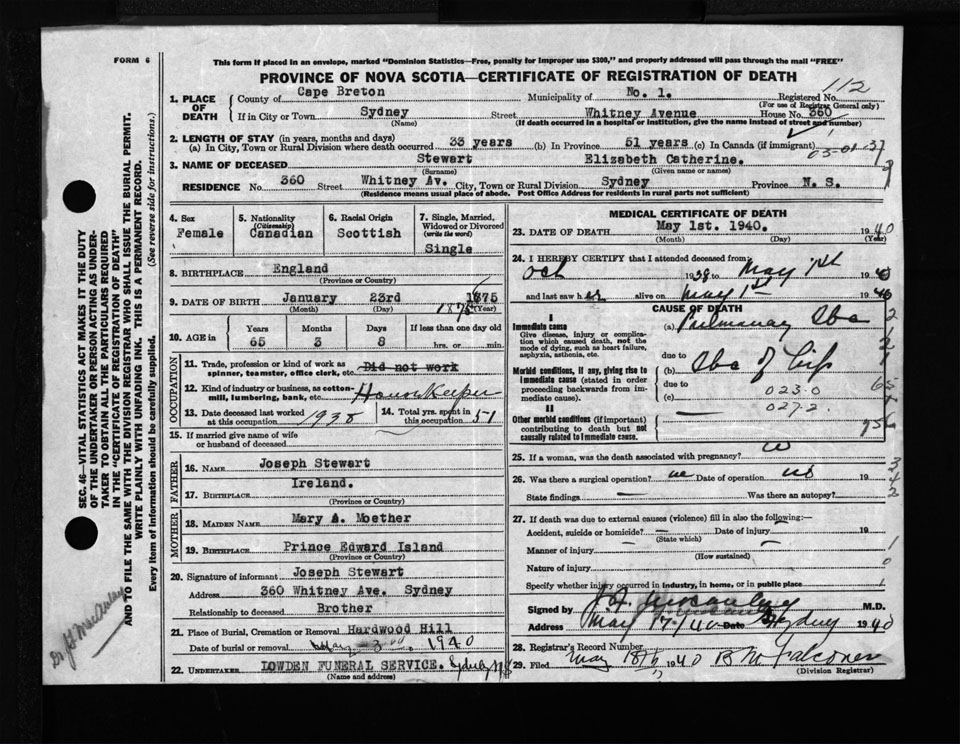 FORM 6
This form if placed in an envelope, marked "Dominion Statistics—Free, penalty for improper use $300," and properly addressed will pass through the mail "FREE"
PROVINCE OF NOVA SCOTIA—CERTIFICATE OF REGISTRATION OF DEATH
112
1. PLACE OF DEATH County of Cape Breton Municipality of No. 1. Registered No.
(For use of Registrar General only)
If in City or Town Sydney Street Whitney Avenue House No. 360
(Name) (If death occurred in a hospital or institution, give the name instead of street and number)
2. LENGTH OF STAY (in years, months and days)
(a) In City, Town or Rural Division where death occurred 33 years (b) In Province 51 years (c) In Canada (if immigrant)
03-01-37
3. NAME OF DECEASED Stewart Elizabeth Catherine.
(Surname) (Given name or names)
RESIDENCE No. 360 Street Whitney Av. City, Town or Rural Division Sydney Province N. S.
(Residence means usual place of abode. Post Office Address for residents in rural parts not sufficient)
4. Sex Female
5. Nationality (Citizenship) Canadian
6. Racial Origin Scottish
7. Single, Married, Widowed or Divorced (write the word) Single
8. BIRTHPLACE England
(Province or Country)
9. DATE OF BIRTH January 23rd 1875
(Month) (Day) (Year)
1875
10. AGE in Years Months Days If less than one day old
65 3 8 hrs. or min.
OCCUPATION
11. Trade, profession or kind of work as spinner, teamster, office clerk, etc. Did not work
12. Kind of industry or business, as cotton-mill, lumbering, bank, etc. House Keeper
13. Date deceased last worked at this occupation 1938
14. Total yrs. spent in this occupation 51
15. If married give name of wife or husband of deceased
FATHER
16. Name Joseph Stewart
17. Birthplace Ireland.
(Province or Country)
MOTHER
18. Maiden Name Mary A. Moether
19. Birthplace Prince Edward Island
(Province or Country)
20. Signature of informant Joseph Stewart
Address 360 Whitney Ave. Sydney
Relationship to deceased Brother
21. Place of Burial, Cremation or Removal Hardwood Hill
Date of burial or removal May 3rd 1940
22. UNDERTAKER LOWDEN FUNERAL SERVICE. Sydney NS
(Name and address)
MEDICAL CERTIFICATE OF DEATH
23. DATE OF DEATH May 1st. 1940. 1940
(Month) (Day) (Year)
24. I HEREBY CERTIFY that I attended deceased from
Oct 1938 to May 1st 1940
and last saw her alive on May 1st 1940
CAUSE OF DEATH
I
Immediate cause
Give disease, injury or complication which caused death, not the mode of dying, such as heart failure, asphyxia, asthenia, etc.
(a) Pulmonary Tbc
due to
Morbid conditions, if any, giving rise to immediate cause (stated in order proceeding backwards from immediate cause).
(b) Tbc of hip
due to
(c) 023.0
027.2
II
Other morbid conditions (if important) contributing to death but not causally related to immediate cause.
25. If a woman, was the death associated with pregnancy?
26. Was there a surgical operation? no Date of operation no 19
State findings — Was there an autopsy?
27. If death was due to external causes (violence) fill in also the following:—
Accident, suicide or homicide? Date of injury 19
(State which)
Manner of injury
(How sustained)
Nature of injury
Specify whether injury occurred in industry, in home, or in public place
Signed by M.D.
Address May 17/40 Date Sydney 1940
28. Registrar's Record Number
29. Filed May 18th 1940 B M Falconer
(Division Registrar)
SEC. 46—VITAL STATISTICS ACT MAKES IT THE DUTY OF THE UNDERTAKER OR PERSON ACTING AS UNDERTAKER TO OBTAIN ALL THE PARTICULARS REQUIRED IN THE "CERTIFICATE OF REGISTRATION OF DEATH" AND TO FILE THE SAME WITH THE DIVISION REGISTRAR WHO SHALL ISSUE THE BURIAL PERMIT.
WRITE PLAINLY WITH UNFADING INK. THIS IS A PERMANENT RECORD.
Every item of information should be carefully supplied. (See reverse side for instructions.)